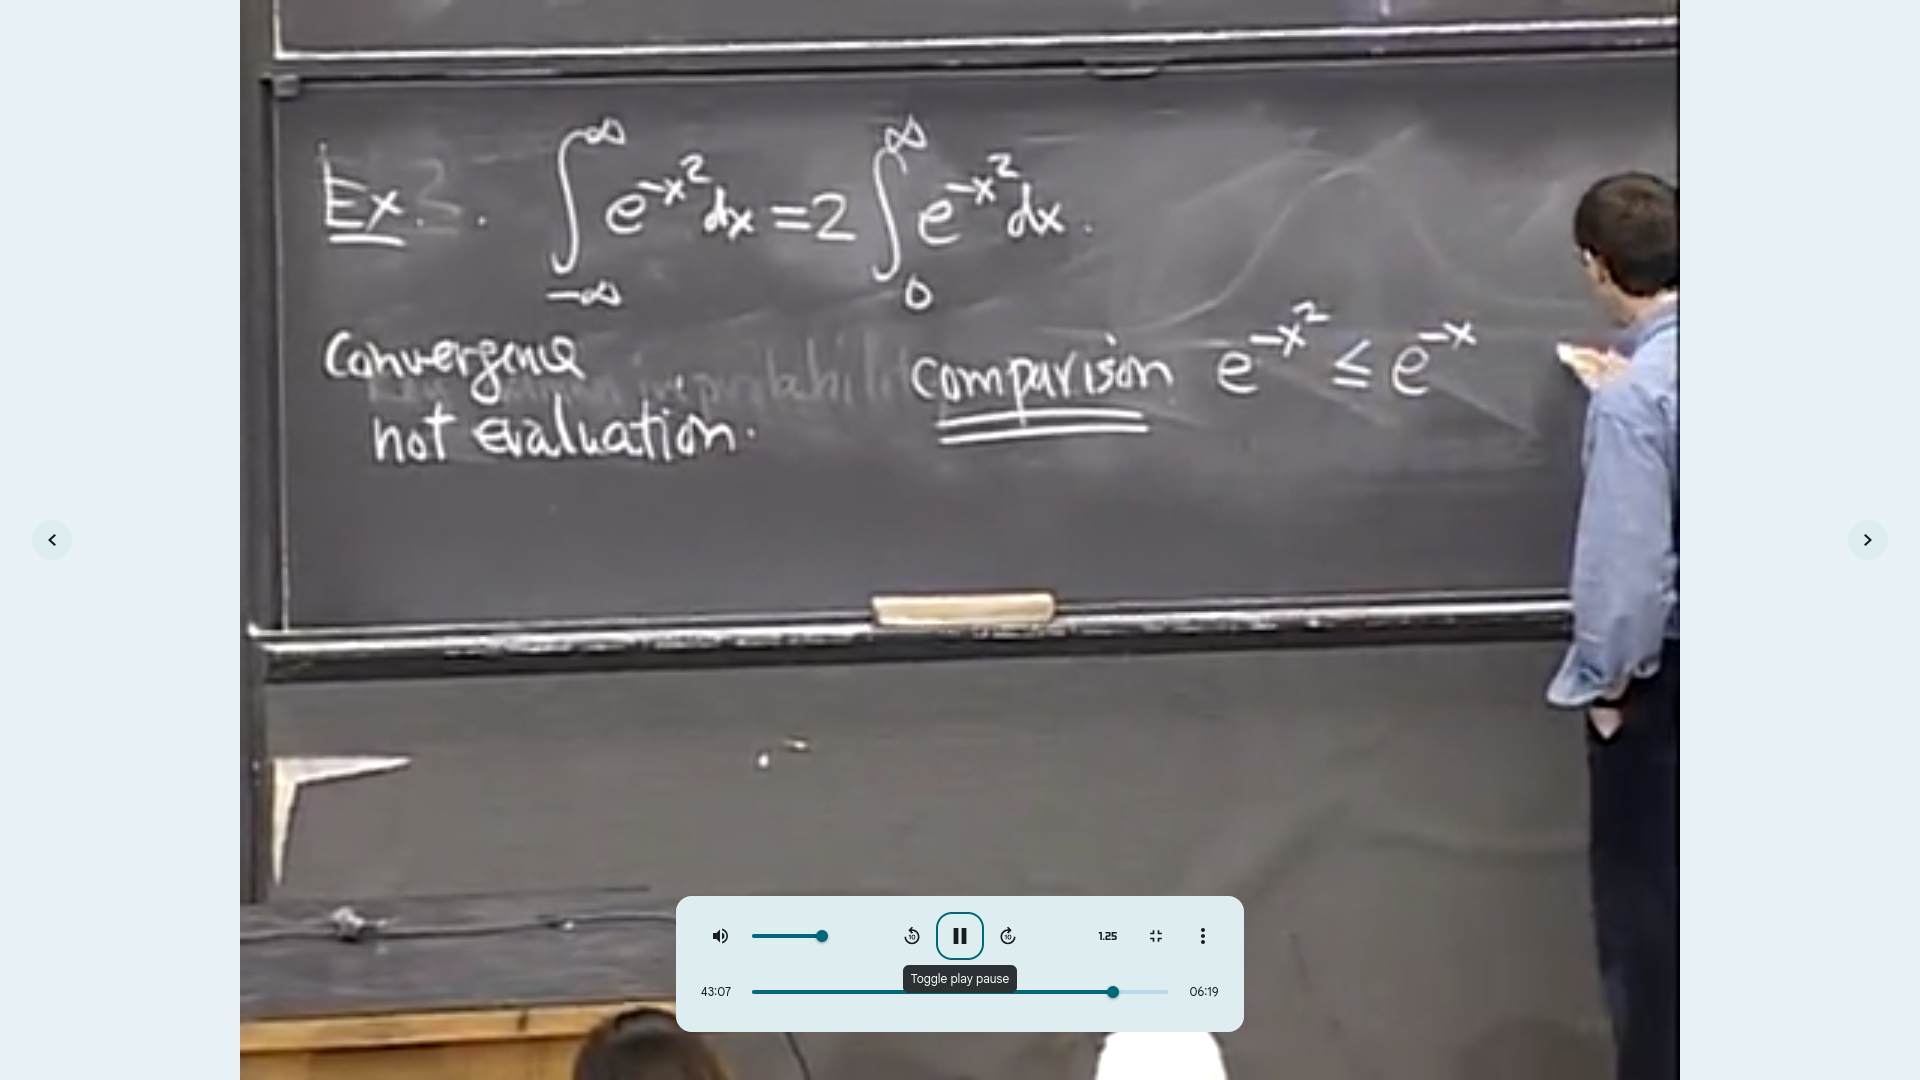 Ex.
∫_{-∞}^{∞} e^{-x^2} dx = 2 ∫_{0}^{∞} e^{-x^2} dx.
Convergence
not evaluation.
comparison e^{-x^2} ≤ e^{-x}
1.25
Toggle play pause
43:07
06:19